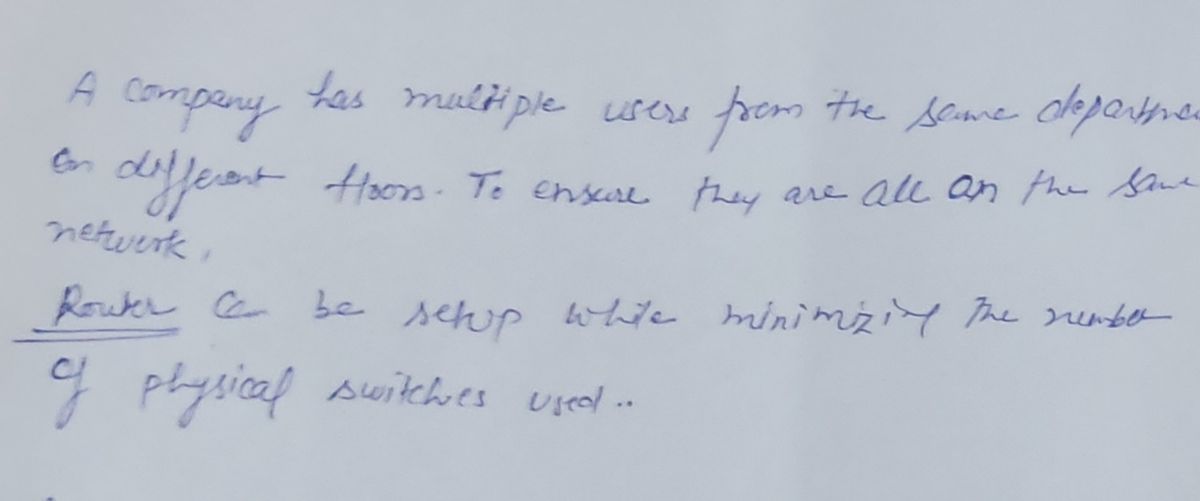 A company has multiple users from the same departme
on different floors. To ensure they are all on the same
network,
Router can be setup while minimizing the number
of physical switches used..